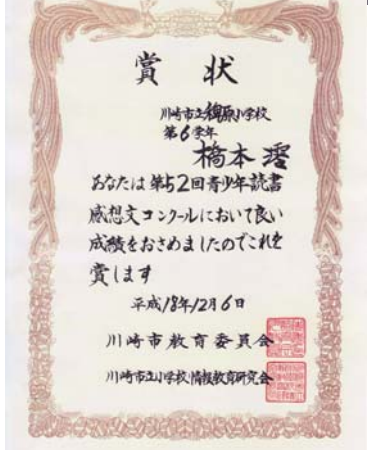 賞状
川崎市立稗原小学校
第6学年
橋本 澪
あなたは第52回青少年読書
感想文コンクールにおいて良い
成績をおさめましたのでこれを
賞します
平成18年12月6日
川崎市教育委員会
川崎市立小学校情報教育研究会